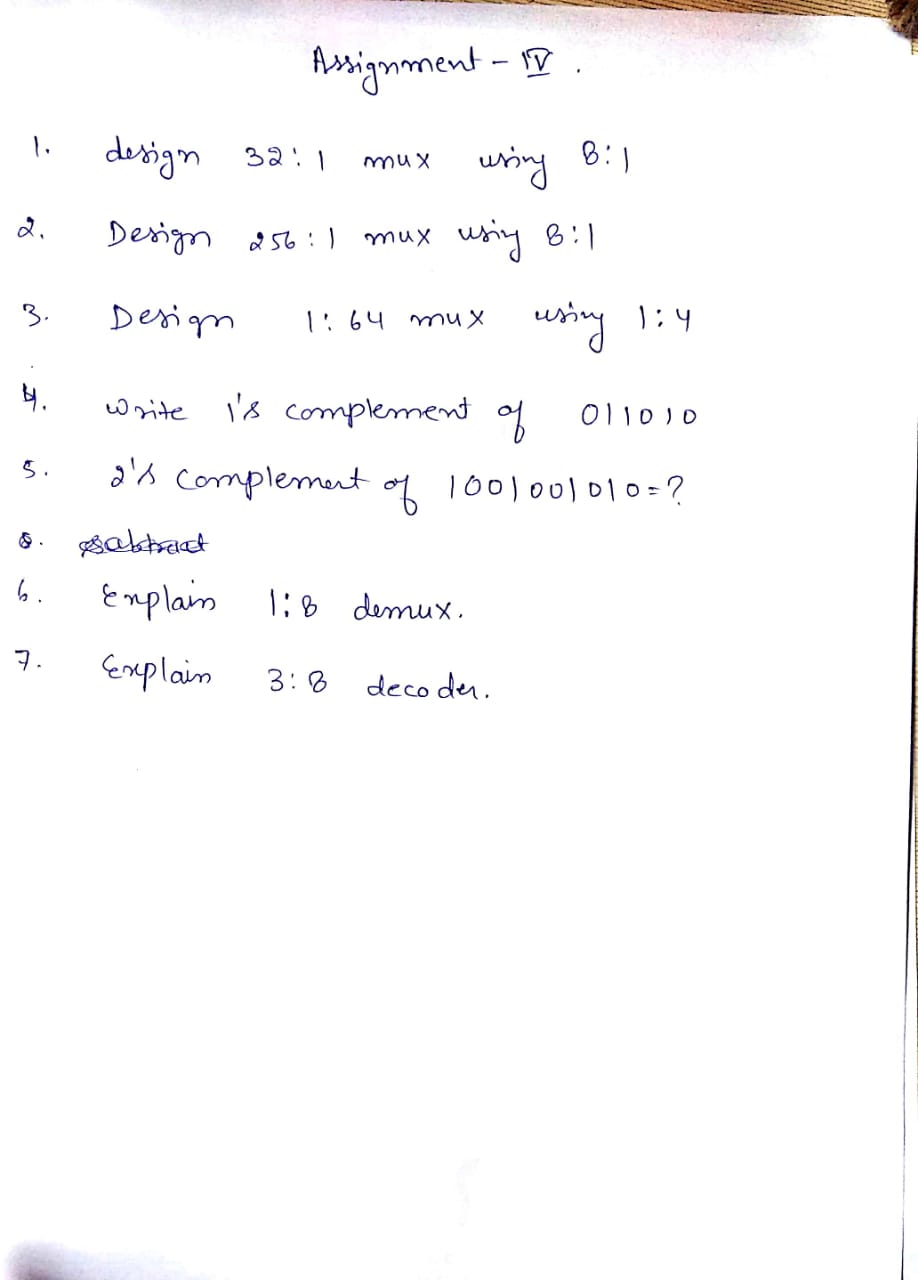 Assignment - IV.
1. design 32:1 mux using 8:1
2. Design 256:1 mux using 8:1
3. Design 1:64 mux using 1:4
4. write 1's complement of 011010
5. 2's complement of 1001001010=?
6. Explain 1:8 demux.
7. Explain 3:8 decoder.